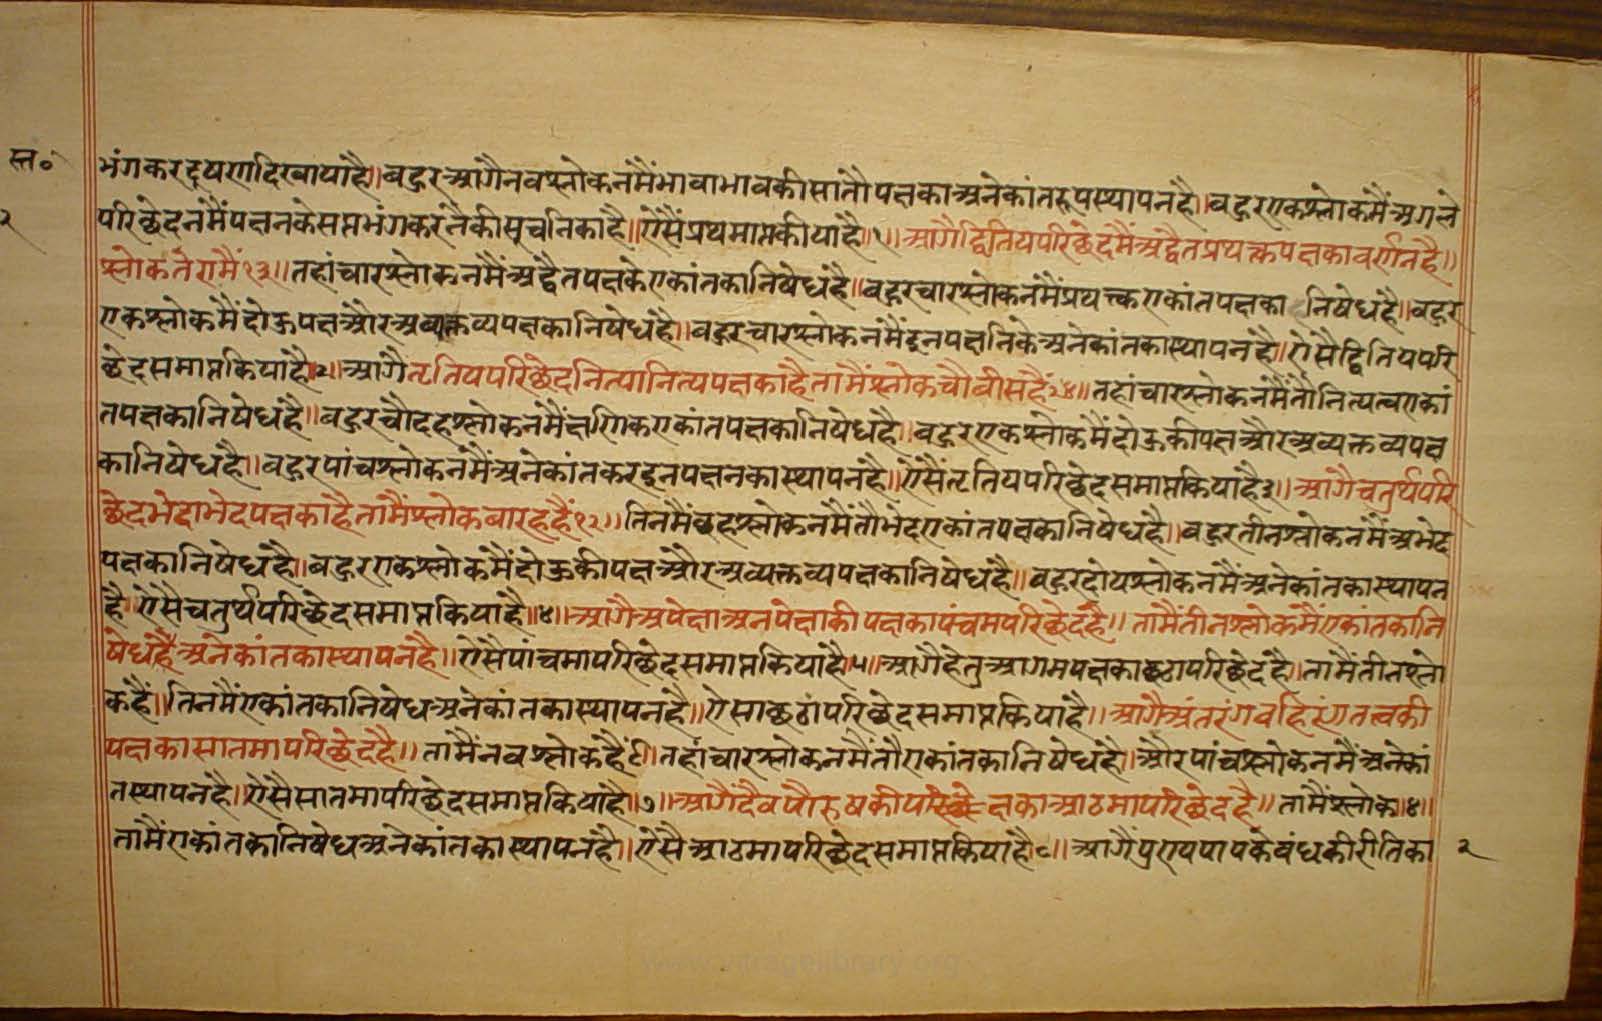 स्त॰
भंगकरदूषणदिखायाहै॥बहुरआगैनवश्लोकनमैंभावाभावकीसातौपक्षकाअनेकांतरूपस्थापनहै॥बहुरएकश्लोकमैंअगले
२
परिछेदनमैंपक्षनकेसप्तभंगकरनैकीसूचनिकाहै॥ऐसैंप्रथमाप्तकीयाहै॥१॥आगैद्वितियपरिछेदमैंअद्वैतप्रथक्त्कपक्षकावर्णनहै॥
श्लोकतेरामैं१३॥तहांचारश्लोकनमैंअद्वैतपक्षकेएकांतकानिषेधहै॥बहुरचारश्लोकनमैंप्रथक्त्कएकांतपक्षका निषेधहै॥बहुर
एकश्लोकमैंदोऊपक्षऔरअवक्तव्यपक्षकानिषेधहै॥बहुरचारश्लोकनमैंइनपक्षनिकेअनेकांतकास्थापनहै॥ऐसैंद्वितियपरि
छेदसमाप्तकियाहै॥२॥आगैतृतियपरिछेदनित्यानित्यपक्षकाहैतामैंश्लोकचौवीसहैं२४॥तहांचारश्लोकनमैंतौनित्यत्वएकां
तपक्षकानिषेधहै॥बहुरचौदहश्लोकनमैंक्षणिकएकांतपक्षकानिषेधहै॥बहुरएकश्लोकमैंदोऊकीपक्षऔरअव्यक्तव्यपक्ष
कानिषेधहै॥बहुरपांचश्लोकनमैंअनेकांतकरइनपक्षनकास्थापनहै॥ऐसैंतृतियपरिछेदसमाप्तकियाहै३॥आगैचतुर्थपरि
छेदभेदाभेदपक्षकाहैतामैंश्लोकबारहहैं१२॥तिनमैंछहश्लोकनमैंतौभेदएकांतपक्षकानिषेधहै॥बहुरतीनश्लोकनमैंअभेद
पक्षकानिषेधहै॥बहुरएकश्लोकमैंदोऊकीपक्षऔरअव्यक्तव्यपक्षकानिषेधहै॥बहुरदोयश्लोकनमैंअनेकांतकास्थापन
है॥ऐसैचतुर्थपरिछेदसमाप्तकियाहै॥४॥आगैअपेक्षाअनपेक्षाकीपक्षकापंचमपरिछेदहै॥तामैंतीनश्लोकमैंएकांतकानि
षेधहैअनेकांतकास्थापनहै॥ऐसैपांचमापरिछेदसमाप्तकियाहै॥५॥आगैहेतुआगमपक्षकाछठापरिछेदहै॥तामैंतीनश्लो
कहैं॥तिनमैंएकांतकानिषेधअनेकांतकास्थापनहै॥ऐसाछठांपरिछेदसमाप्तकियाहै॥आगैअंतरंगवहिरंगतत्वकी
पक्षकासातमापरिछेदहै॥तामैंनवश्लोकहैं९॥तहांचारश्लोकनमैंतौएकांतकानिषेधहै॥औरपांचश्लोकनमैंअनेकां
तस्थापनहै॥ऐसैंसातमापरिछेदसमाप्तकियाहै॥७॥आगैंदैवपौरुषकीपक्षकाआठमापरिछेदहै॥तामैंश्लोक॥४॥
तामैंएकांतकानिषेधअनेकांतकास्थापनहै॥ऐसैआठमापरिछेदसमाप्तकियाहै८॥आगैंपुण्यपापकेबंधकीरीतिका
२